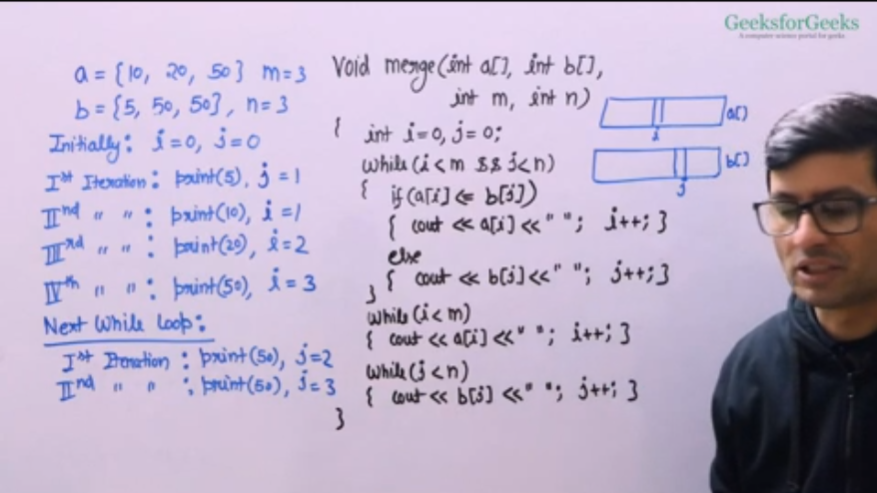 GeeksforGeeks
A computer science portal for geeks
a = {10, 20, 50} m=3
b = {5, 50, 50}, n=3
Initially: i=0, j=0
Ist Iteration: print(5), j=1
IInd " " : print(10), i=1
IIIrd " " : print(20), i=2
IVth " " : print(50), i=3
Next While Loop:
Ist Iteration : print(50), j=2
IInd " " : print(50), j=3
Void merge(int a[], int b[],
int m, int n)
{ int i=0, j=0;
while(i<m && j<n)
{ if(a[i] <= b[j])
{ cout << a[i] << " "; i++; }
else
{ cout << b[j] << " "; j++; }
}
while(i<m)
{ cout << a[i] << " "; i++; }
while(j<n)
{ cout << b[j] << " "; j++; }
}
a[]
i
b[]
j